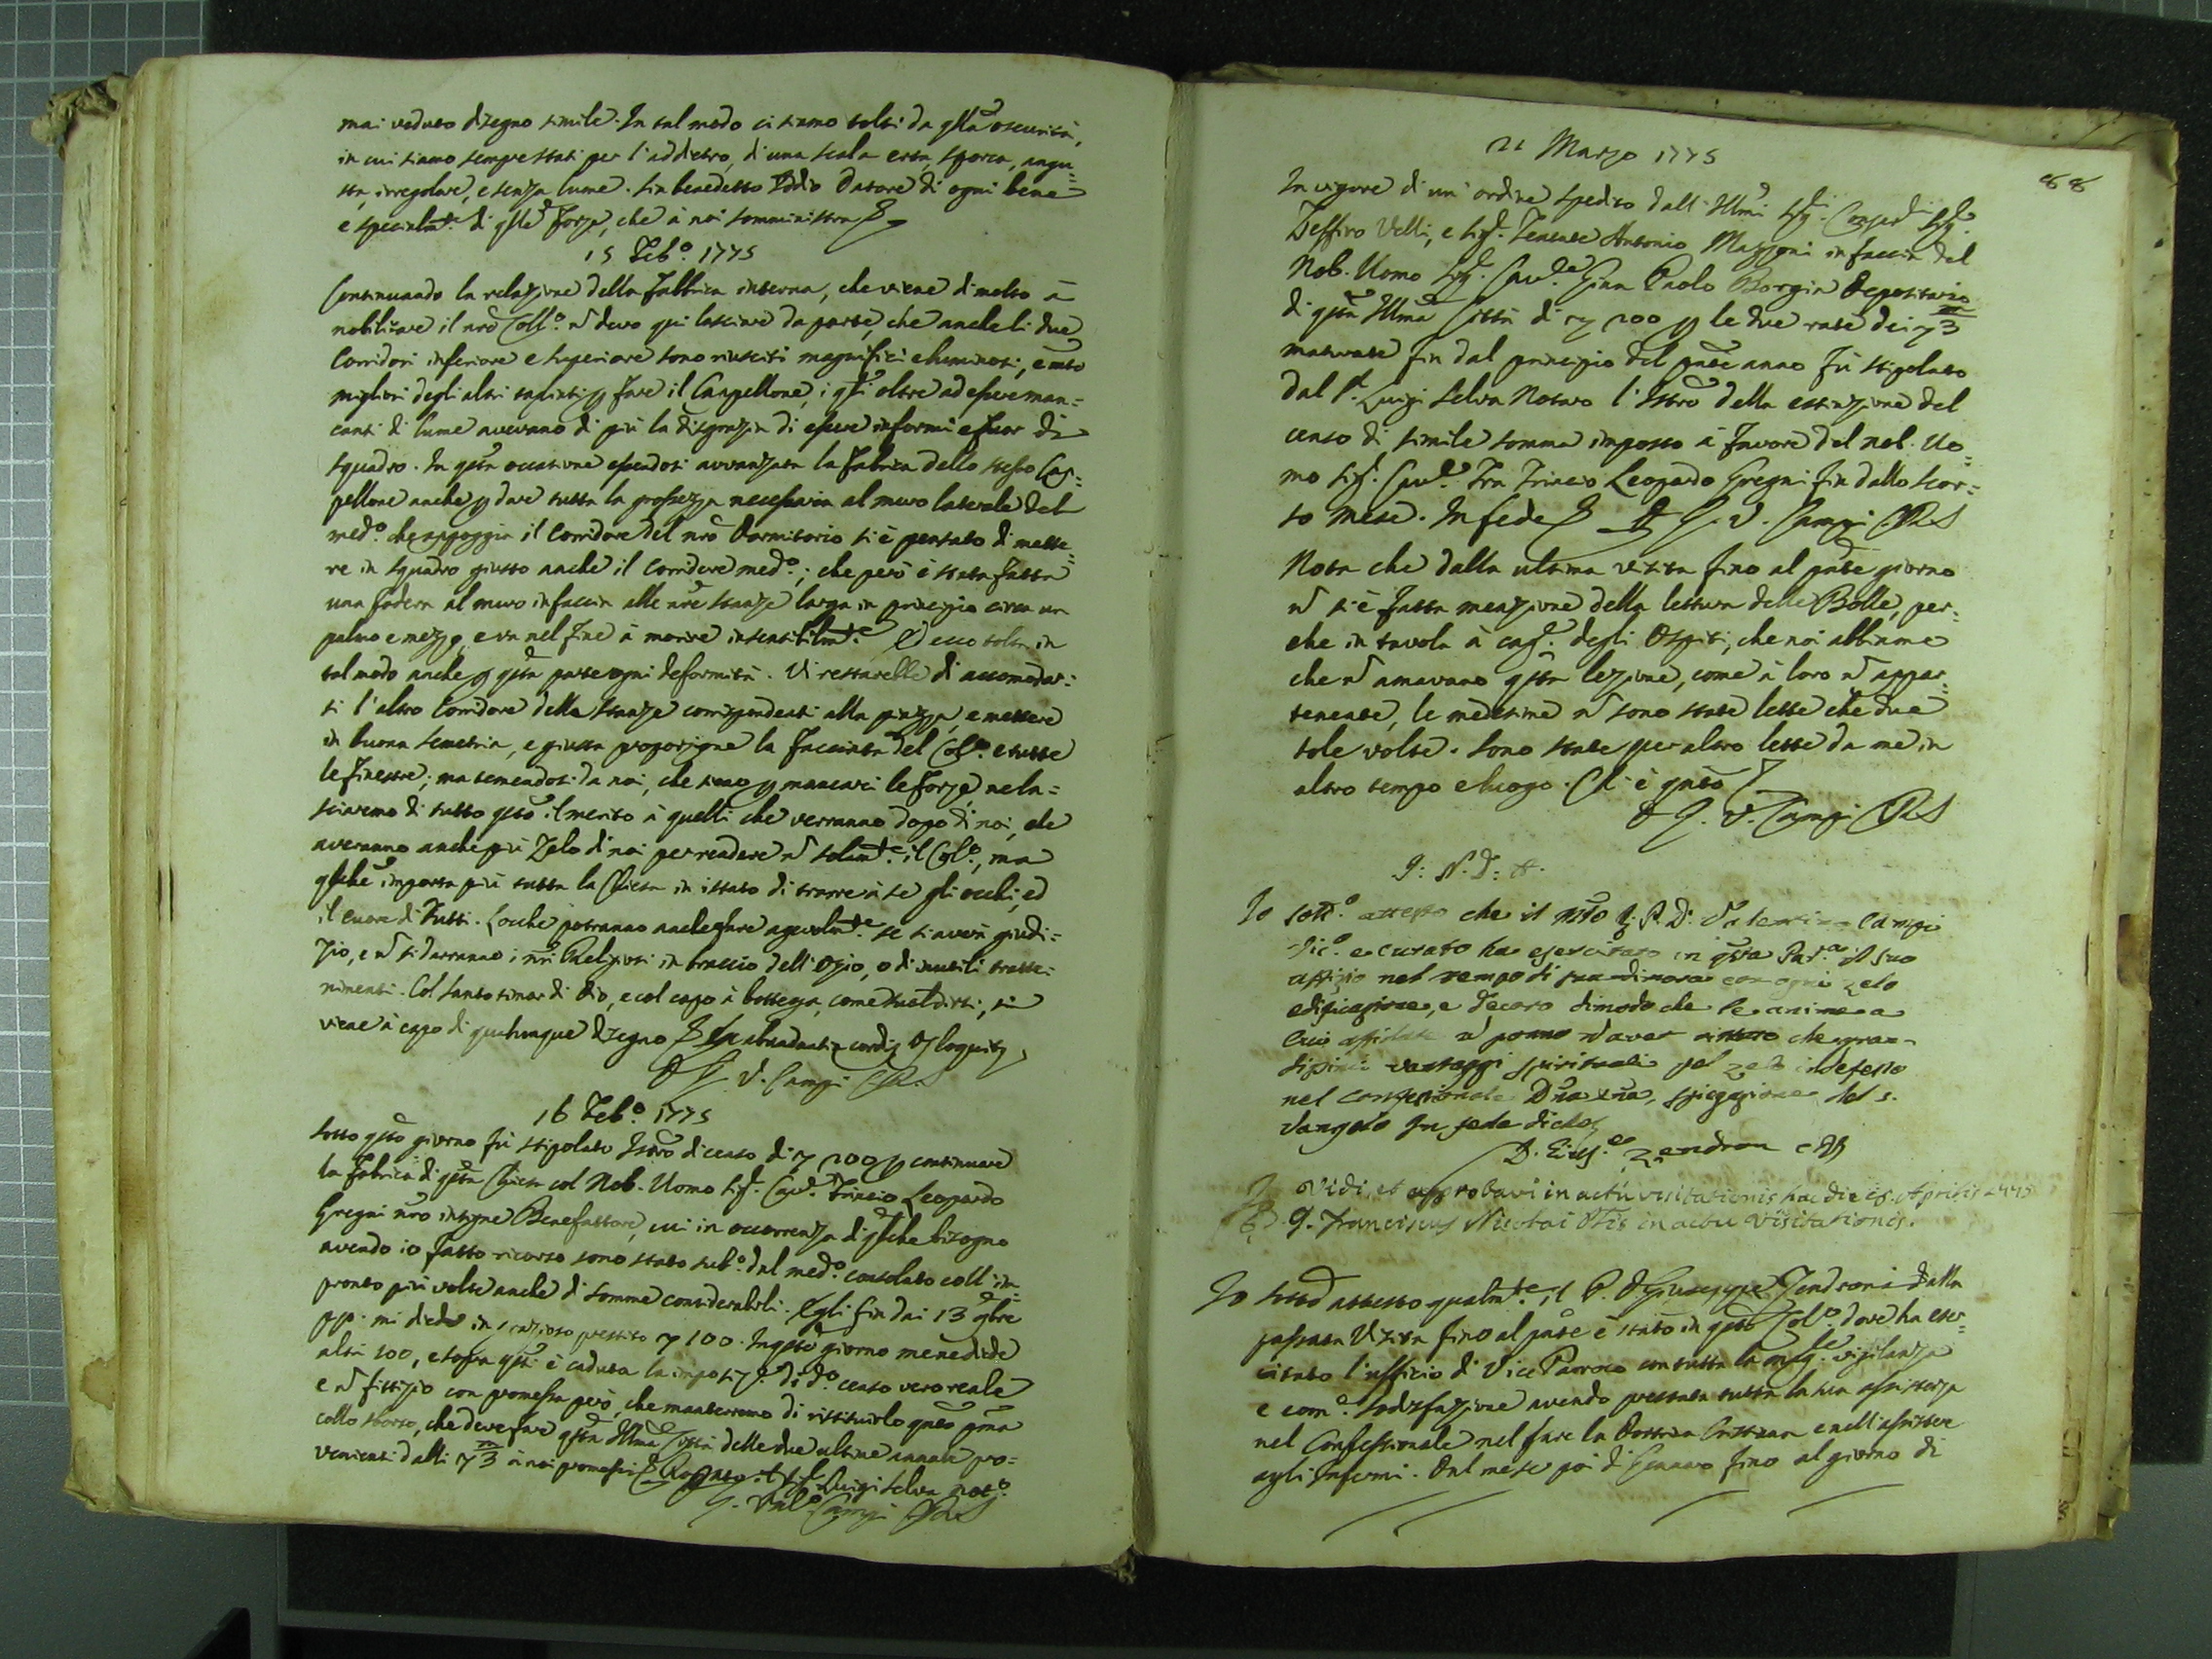 mai veduto disegno simile. In tal modo ci siamo tolti da qlla oscurità,
in cui siamo sempre stati per l'addietro, di una scala erta, sporca, angu=
sta, irregolare, e senza lume. Sia benedetto Iddio Datore di ogni bene
e specialmte. di qlle forze, che à noi somministra &
15 Febo. 1775
Continuando la relazione della Fabbrica interna, che viene di molto à
nobilitare il nro Collo. ñ devo qui lasciare da parte, che anche li due
Corridori inferiore e superiore sono riusciti magnifici e luminosi, e mto
migliori degli altri p fare il Cappellone, i qli oltre ad essere man=
canti di lume avevano di più la disgrazia di essere informi e fuor di
squadro. In qsta occasione essendosi avvanzata la fabrica dello stesso Cap=
pellone anche p dare tutta la grossezza necessaria al muro laterale del
medo. che appoggia il Corridore del nrō Dormitorio si è pensato di mette=
re in squadro giusto anche il Corridore medo.; che però è stata fatta
una fodera al muro in faccia alle nrē stanze larga in principio circa un
palmo e mezzo, e va nel fine à morire insensibilmte. Ed ecco tolta in
tal modo anche p qsta parte ogni deformità. Vi restarebbe di accomodar=
si l'altro Corridore della stanze corrispondenti alla piazza, e mettere
in buona semetria, e giusta proporzione la facciata del Collo. e tutte
le finestre; ma temendosi da noi, che siano p mancarci le forze, ne la=
sciaremo di tutto qsto il merito à quelli che verranno dopo di noi, che
averanno anche più zelo di noi per rendere ñ solamte. il Collo., ma
qlche importa più tutta la Chiesa in istato di trarre à se gli occhi, ed
il cuore di Tutti. Locche potranno anche fare agevolmte. se si averà giudi=
zio, e ñ si darranno i nrī Religiosi in braccio dell'ozio, o di inutili tratte=
nimenti. Col santo timor di Dio, e col capo à bottega, come suol dirsi, si
viene à capo di qualunque disegno & Ex abundantia cordis os loquitur
D G. V. Campi CRS
16 Febo. 1775
Sotto qsto giorno fù stipolato Istro di censo di 200 p continuare
la fabrica di qsta Chiesa col Nob. Uomo Sig. Cavre. Trincio Leopardo
Gregni nrō insigne Benefattore, cui in occorrenza di qlche bisogno
avendo io fatto ricorso sono stato subo. dal medo. consolato coll'im=
pronto più volte anche di somme considerabili. Egli fin dai 13 qbre
pp. mi diede in prestito 100. In qsto giorno me ne diede
altri 100, e sopra qsti è caduta la imposize. di do. censo vero reale
e ñ fittizio con promessa però, che manterremo di ristituirlo qnto pma
collo sborso, che deve fare qsta Illma Città delle due ultime annate pro=
venienti dalli 3 à noi promessi & Rogato il Sig. Luigi Selva noto.
G. Valo. Campi CRS
88
21 Marzo 1775
In vigore di un'ordine spedito dall'Illmi Sigri. Consri. Sig.
Zeffiro Velli, e Sig. Tenente Antonio Mazzoni in faccia del
Nob. Uomo Sig. Cavre. Gian Paolo Borgia Depositario
di qsta Illma Città di 200 p le due rate dei 3
maturate fin dal principio del pnte anno fù stipolato
dal S. Luigi Selva Notaro l'Istro della estinzione del
censo di simile somma imposto à favore del nob. Uo=
mo Sig. Cavre. Fra Trincio Leopardo Gregni fin dallo scor=
so mese. In fede & D G. V. Campi CRS
Nota che dalla ultima visita fino al pnte giorno
ñ si è fatta menzione della lettura delle Bolle, per=
che in tavola à cag. degli Ospiti, che noi abbiamo
che ñ amavano qsta lezione, come à loro ñ appar=
tenente, le medesime ñ sono state lette che due
sole volte. Sono state per altro lette da me in
altro tempo e luogo. Ch'è qnto &
D G. V. Campi CRS
I: N. D: A.
Io sotto. attesto che il Mto R. P. D: Valentino Campi
Vico. e Curato ha esercitato in qsta Para. il suo
uffizio nel tempo di sua dimora con ogni zelo
edificazione, e decoro dimodo che le anime a
lui affidate ñ ponno ñ aver che gran=
dissimi vantaggi spirituali pel zelo indefesso
nel confessionale Dña xña, spiegazione del s.
Vangelo In fede dico &
D. Zendron CRS
Vidi, et approbavi in actu visitationis hac die 19. Aprilis 1775
D. G. Franciscus Nicolai Vtis in actu visitationis.
Io sottō attesto qualmte. il P. D Giuseppe Zendroni dalla
passata Visita fino al pnte è stato in qsto Collo. dove ha eser=
citato l'ufficio di Vice Paroco con tutta la vigilanza
e come. sodisfazione avendo prestata tutta la sua assistenza
nel Confessionale nel fare la Dottrina Cristiana e nell'assistere
agli Infermi. Dal mese poi di Gennaro fino al giorno di